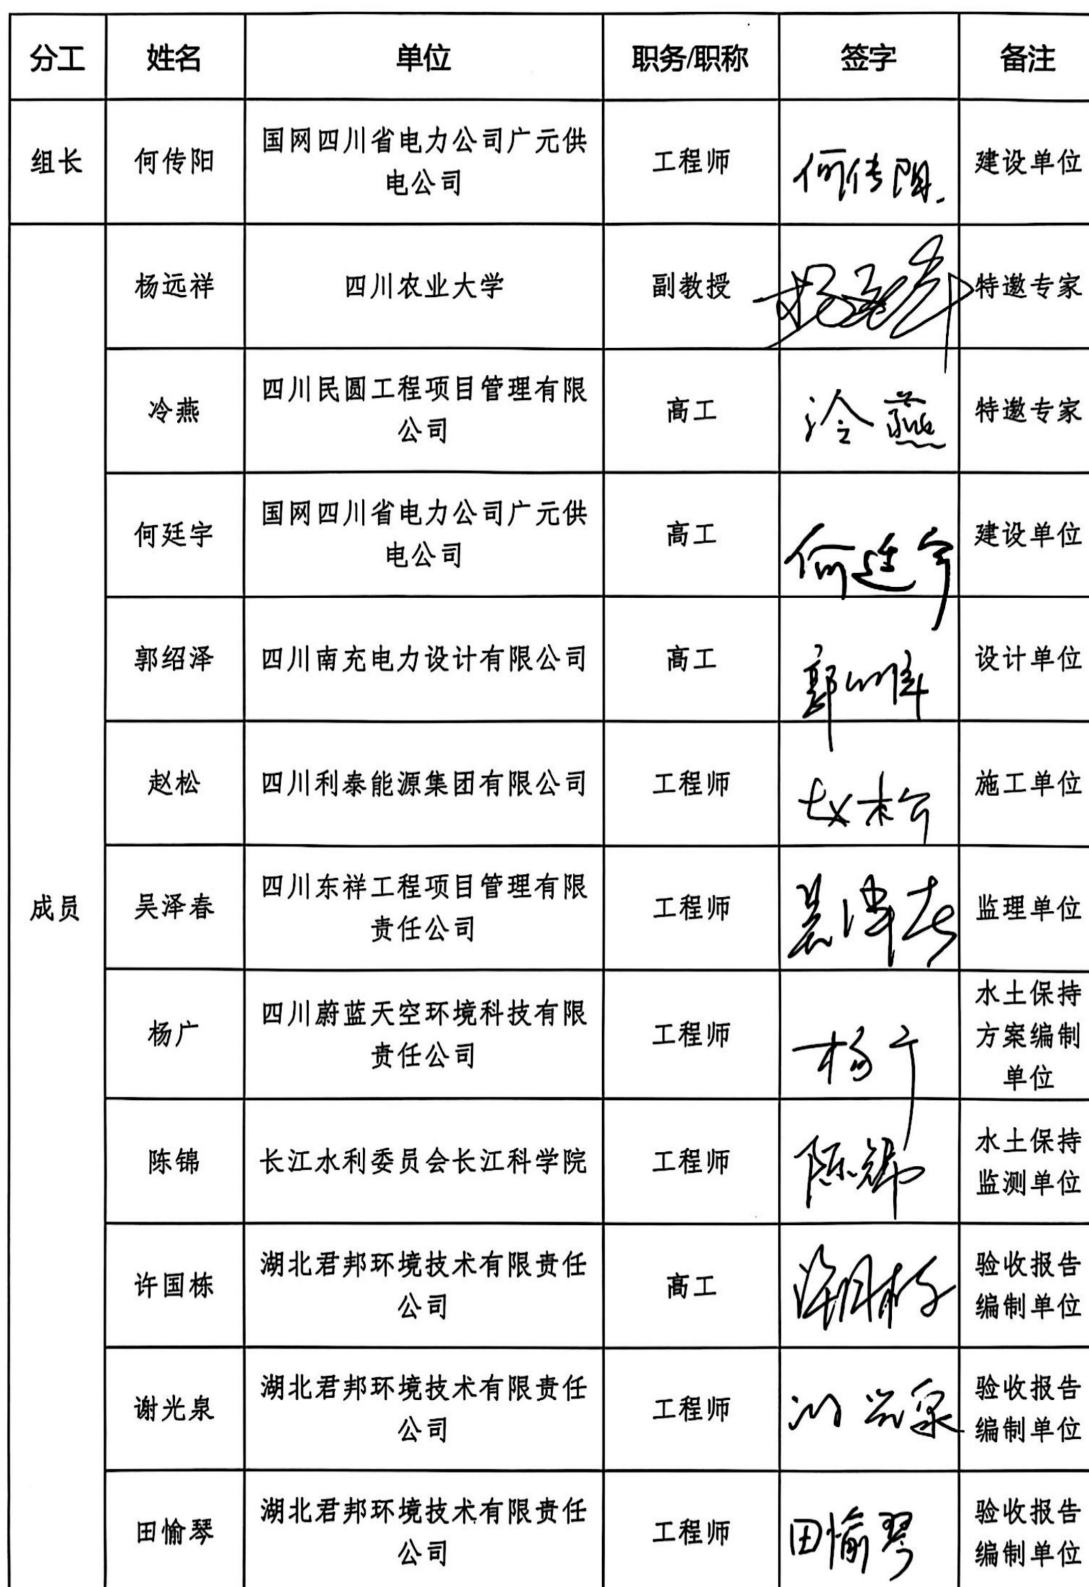 分工 姓名 单位 职务/职称 签字 备注
组长 何传阳 国网四川省电力公司广元供
电公司 工程师 何传阳 建设单位
成员
杨远祥 四川农业大学 副教授 杨远祥 特邀专家
冷燕 四川民圆工程项目管理有限
公司 高工 冷燕 特邀专家
何廷宇 国网四川省电力公司广元供
电公司 高工 何廷宇 建设单位
郭绍泽 四川南充电力设计有限公司 高工 设计单位
赵松 四川利泰能源集团有限公司 工程师 赵松 施工单位
吴泽春 四川东祥工程项目管理有限
责任公司 工程师 吴泽春 监理单位
杨广 四川蔚蓝天空环境科技有限
责任公司 工程师 杨广 水土保持
方案编制
单位
陈锦 长江水利委员会长江科学院 工程师 陈锦 水土保持
监测单位
许国栋 湖北君邦环境技术有限责任
公司 高工 许国栋 验收报告
编制单位
谢光泉 湖北君邦环境技术有限责任
公司 工程师 谢光泉 验收报告
编制单位
田愉琴 湖北君邦环境技术有限责任
公司 工程师 田愉琴 验收报告
编制单位